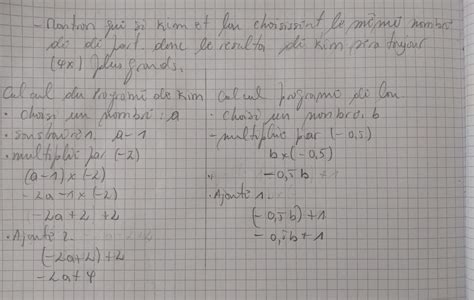 - Montron qui si Kim et Lou choisissent le même nombre
de départ donc le resulta di Kim sera toujour
(4x) plus grands.
Calcul du Programe de Kim
• choisi un nombre : a
• soustraire 1. a - 1
• multiplié par (-2)
(a - 1) × (-2)
- 2a - 1 × (-2)
- 2a + 2 + 2
• Ajouté 2.
(-2a + 2) + 2
- 2a + 4
Calcul programe de Lou
• choisi un nombre : b
- multiplié par (-0,5)
b × (-0,5)
- 0,5b + 1
• Ajouté 1.
(-0,5b) + 1
- 0,5b + 1